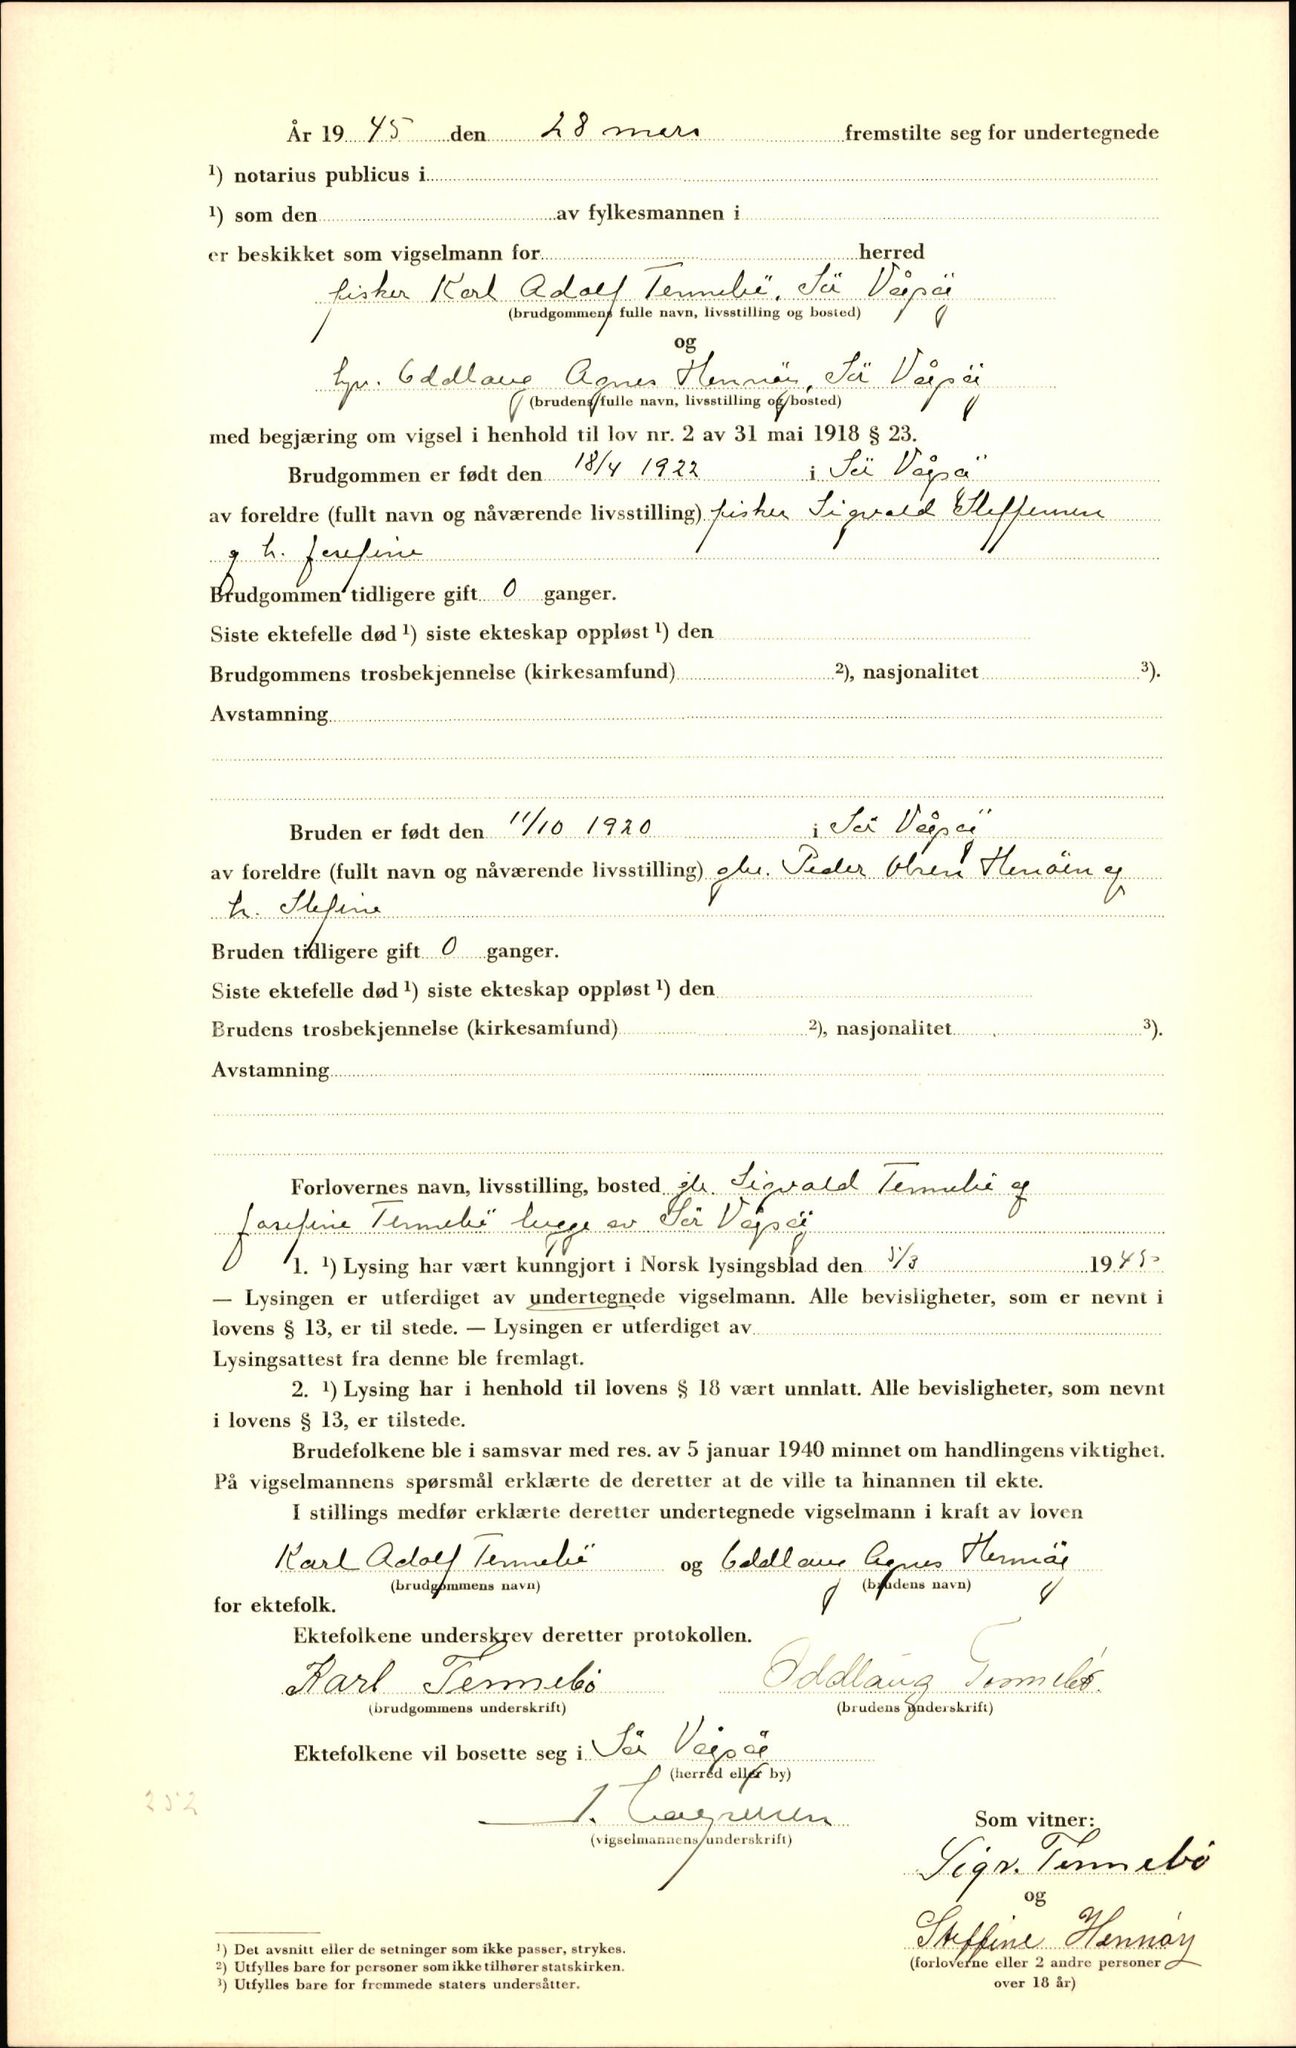 År 1945 den 28 mars fremstilte seg for undertegnede
¹) notarius publicus i
¹) som den av fylkesmannen i
er beskikket som vigselmann for herred
fisker Karl Adolf Tennebö, Sör Vågsöy
(brudgommens fulle navn, livsstilling og bosted)
og
Oddlaug Agnes Hennöy, Sör Vågsöy
(brudens fulle navn, livsstilling og bosted)
med begjæring om vigsel i henhold til lov nr. 2 av 31 mai 1918 § 23.
Brudgommen er født den 18/4 1922 i Sör Vågsö
av foreldre (fullt navn og nåværende livsstilling) fisker Sigvald Steffensen
og h. Josefine
Brudgommen tidligere gift 0 ganger.
Siste ektefelle død ¹) siste ekteskap oppløst ¹) den
Brudgommens trosbekjennelse (kirkesamfund) ²), nasjonalitet ³).
Avstamning
Bruden er født den 11/10 1920 i Sör Vågsöy
av foreldre (fullt navn og nåværende livsstilling) gbr. Peder Olsen Henöen og
h. Stefine
Bruden tidligere gift 0 ganger.
Siste ektefelle død ¹) siste ekteskap oppløst ¹) den
Brudens trosbekjennelse (kirkesamfund) ²), nasjonalitet ³).
Avstamning
Forlovernes navn, livsstilling, bosted gbr. Sigvald Tennebö og
Josefine Tennebö begge av Sör Vågsöy
1. ¹) Lysing har vært kunngjort i Norsk lysingsblad den 5/3 1945
— Lysingen er utferdiget av undertegnede vigselmann. Alle bevisligheter, som er nevnt i
lovens § 13, er til stede. — Lysingen er utferdiget av
Lysingsattest fra denne ble fremlagt.
2. ¹) Lysing har i henhold til lovens § 18 vært unnlatt. Alle bevisligheter, som nevnt
i lovens § 13, er tilstede.
Brudefolkene ble i samsvar med res. av 5 januar 1940 minnet om handlingens viktighet.
På vigselmannens spørsmål erklærte de deretter at de ville ta hinannen til ekte.
I stillings medfør erklærte deretter undertegnede vigselmann i kraft av loven
Karl Adolf Tennebö og Oddlaug Agnes Hennöy
(brudgommens navn) (brudens navn)
for ektefolk.
Ektefolkene underskrev deretter protokollen.
Karl Tennebø Oddlaug Tennebø.
(brudgommens underskrift) (brudens underskrift)
Ektefolkene vil bosette seg i Sör Vågsöy
(herred eller by)
252
(vigselmannens underskrift)
Som vitner:
Sigv. Tennebø
og
Steffine Hennøy
(forloverne eller 2 andre personer
over 18 år)
¹) Det avsnitt eller de setninger som ikke passer, strykes.
²) Utfylles bare for personer som ikke tilhører statskirken.
³) Utfylles bare for fremmede staters undersåtter.